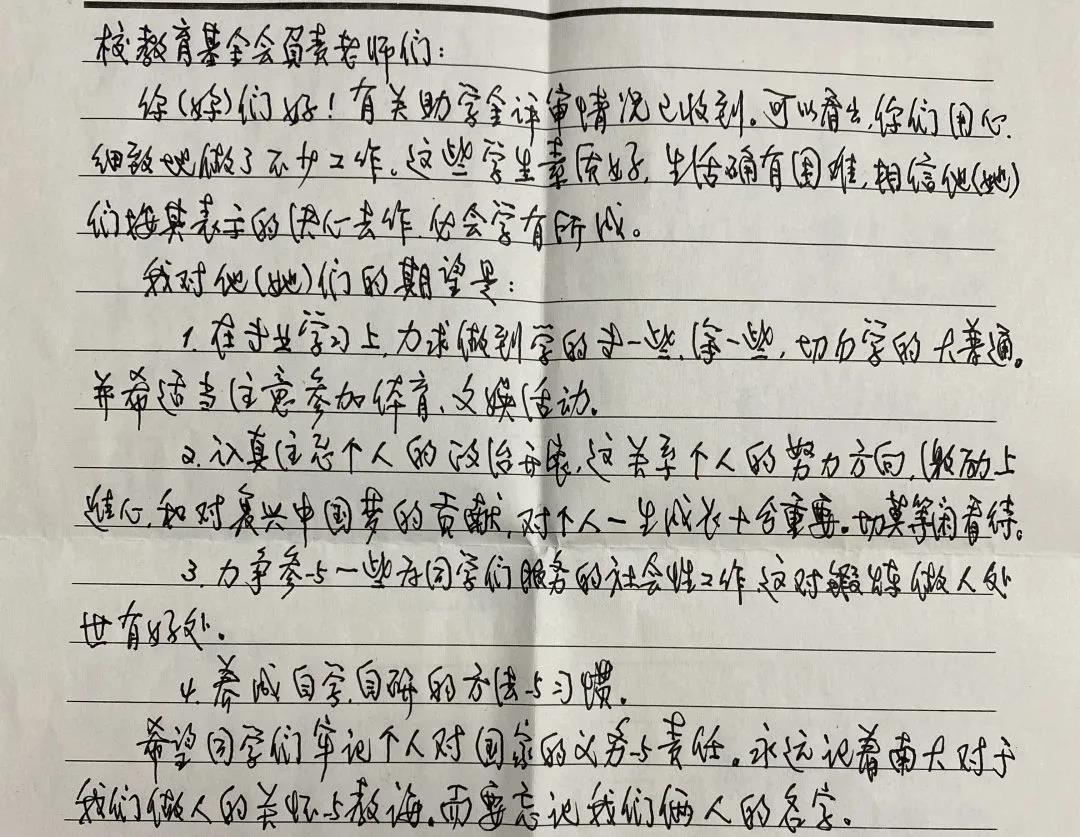 校教育基金会负责老师们：
你(妳)们好！有关助学金评审情况已收到。可以看出,你们用心、
细致地做了不少工作。这些学生素质好,生活确有困难,相信他(她)
们按其表示的决心去作,必会学有所成。
我对他(她)们的期望是：
1.在专业学习上,力求做到学的专一些、深一些,切勿学的大普通。
并希适当注意参加体育、文娱活动。
2.认真注意个人的政治进展,这关系个人的努力方向,激励上
进心,和对复兴中国梦的贡献,对个人一生成长十分重要。切莫等闲看待。
3.力争参与一些为同学们服务的社会性工作,这对锻炼做人处
世有好处。
4.养成自学、自研的方法与习惯。
希望同学们牢记个人对国家的义务与责任。永远记着南大对于
我们做人的关怀与教诲。而要忘记我们俩人的名字。